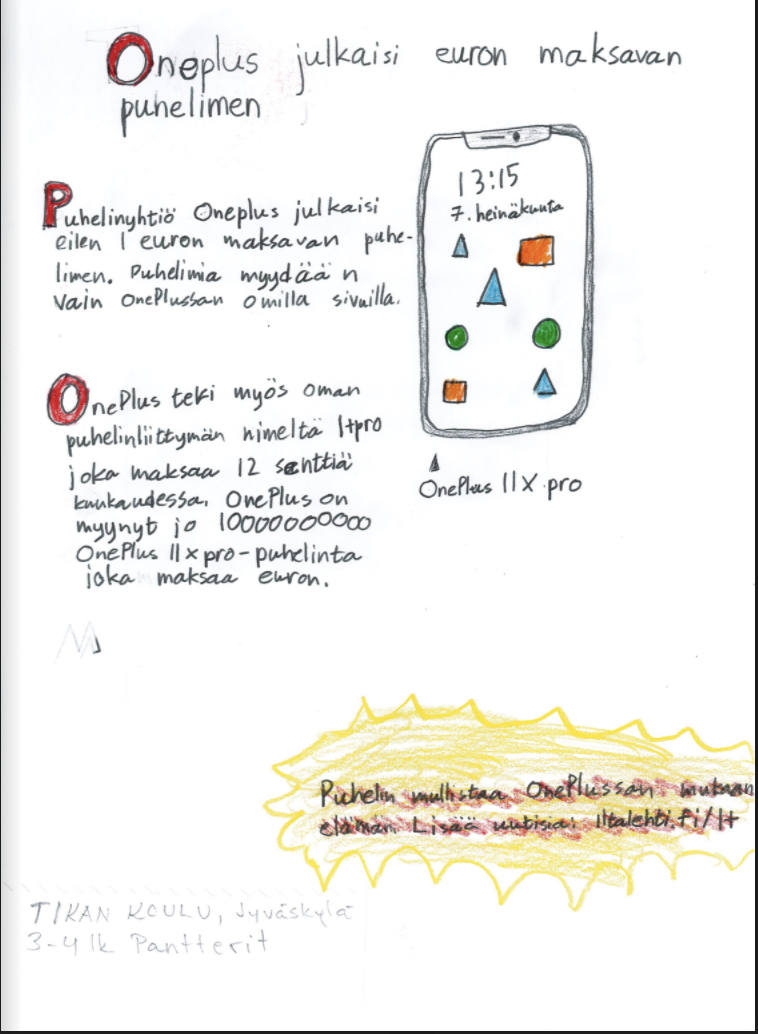 Oneplus julkaisi euron maksavan
puhelimen
Puhelinyhtiö Oneplus julkaisi
eilen 1 euron maksavan puhe-
limen. Puhelimia myydään
vain OnePlussan omilla sivuilla.
OnePlus teki myös oman
puhelinliittymän nimeltä 1+pro
joka maksaa 12 senttiä
kuukaudessa. OnePlus on
myynyt jo 10000000000
OnePlus 11x pro-puhelinta
joka maksaa euron.
13:15
7. heinäkuuta
OnePlus 11X pro
Puhelin mullistaa OnePlussan mukaan
elämän Lisää uutisia: iltalehti.fi/1+
TIKAN KOULU, Jyväskylä
3-4 lk Pantterit